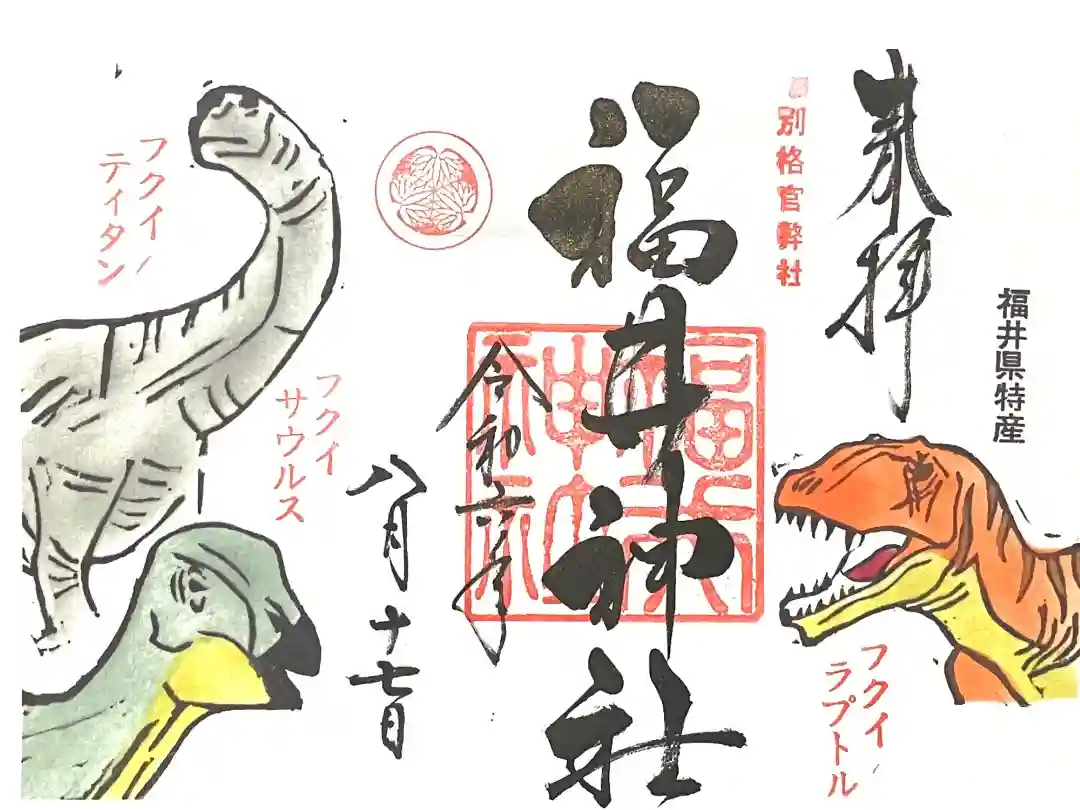 奉拝
福井県特産
別格官幣社
福井神社
福井神社
令和六年
八月十七日
フクイラプトル
フクイ
サウルス
フクイ
ティタン